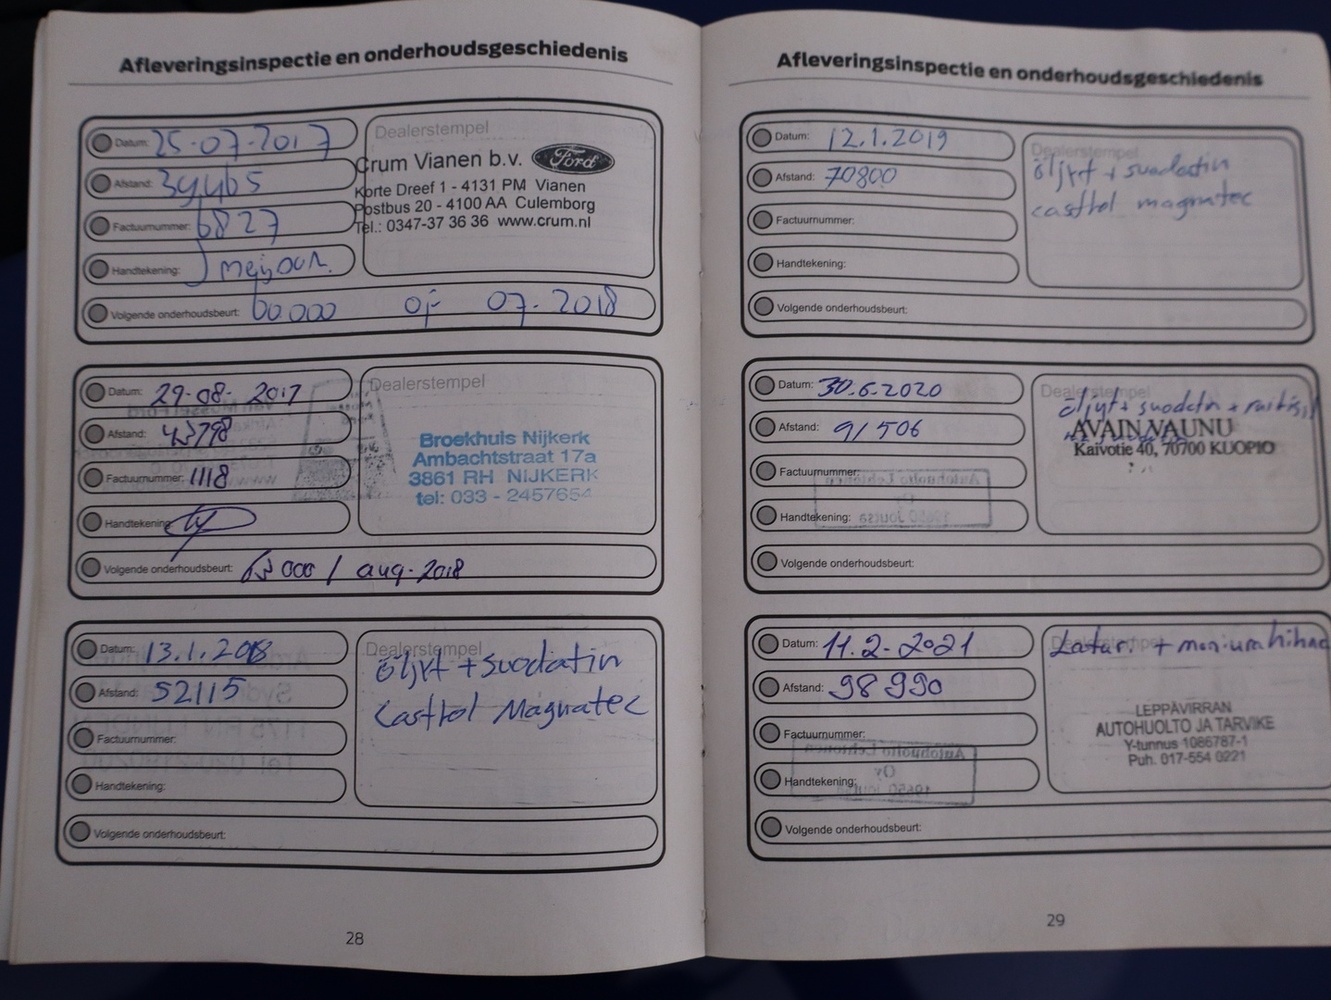 Afleveringsinspectie en onderhoudsgeschiedenis
Datum: 25-07-2017
Afstand: 39465
Factuurnummer: 6827
Handtekening:
Volgende onderhoudsbeurt: 60.000 of 07-2018
Dealerstempel
Crum Vianen b.v. Ford
Korte Dreef 1 - 4131 PM Vianen
Postbus 20 - 4100 AA Culemborg
Tel.: 0347-37 36 36 www.crum.nl
Datum: 29-08-2017
Afstand: 43798
Factuurnummer: 1118
Handtekening:
Volgende onderhoudsbeurt: 63000 / aug-2018
Dealerstempel
Broekhuis Nijkerk
Ambachtstraat 17a
3861 RH NIJKERK
tel: 033 - 2457654
Datum: 13.1.2018
Afstand: 52115
Factuurnummer:
Handtekening:
Volgende onderhoudsbeurt:
Dealerstempel
öljyt + suodatin
Castrol Magnatec
28
Afleveringsinspectie en onderhoudsgeschiedenis
Datum: 12.1.2019
Afstand: 70800
Factuurnummer:
Handtekening:
Volgende onderhoudsbeurt:
Dealerstempel
öljyt + suodatin
castrol magnatec
Datum: 30.6.2020
Afstand: 91506
Factuurnummer:
Handtekening:
Volgende onderhoudsbeurt:
Dealerstempel
öljyt + suodatin +
AVAIN VAUNU
Kaivotie 40, 70700 KUOPIO
Datum: 11.2-2021
Afstand: 98990
Factuurnummer:
Handtekening:
Volgende onderhoudsbeurt:
Dealerstempel
LEPPÄVIRRAN
AUTOHUOLTO JA TARVIKE
Y-tunnus 1086787-1
Puh. 017-554 0221
29